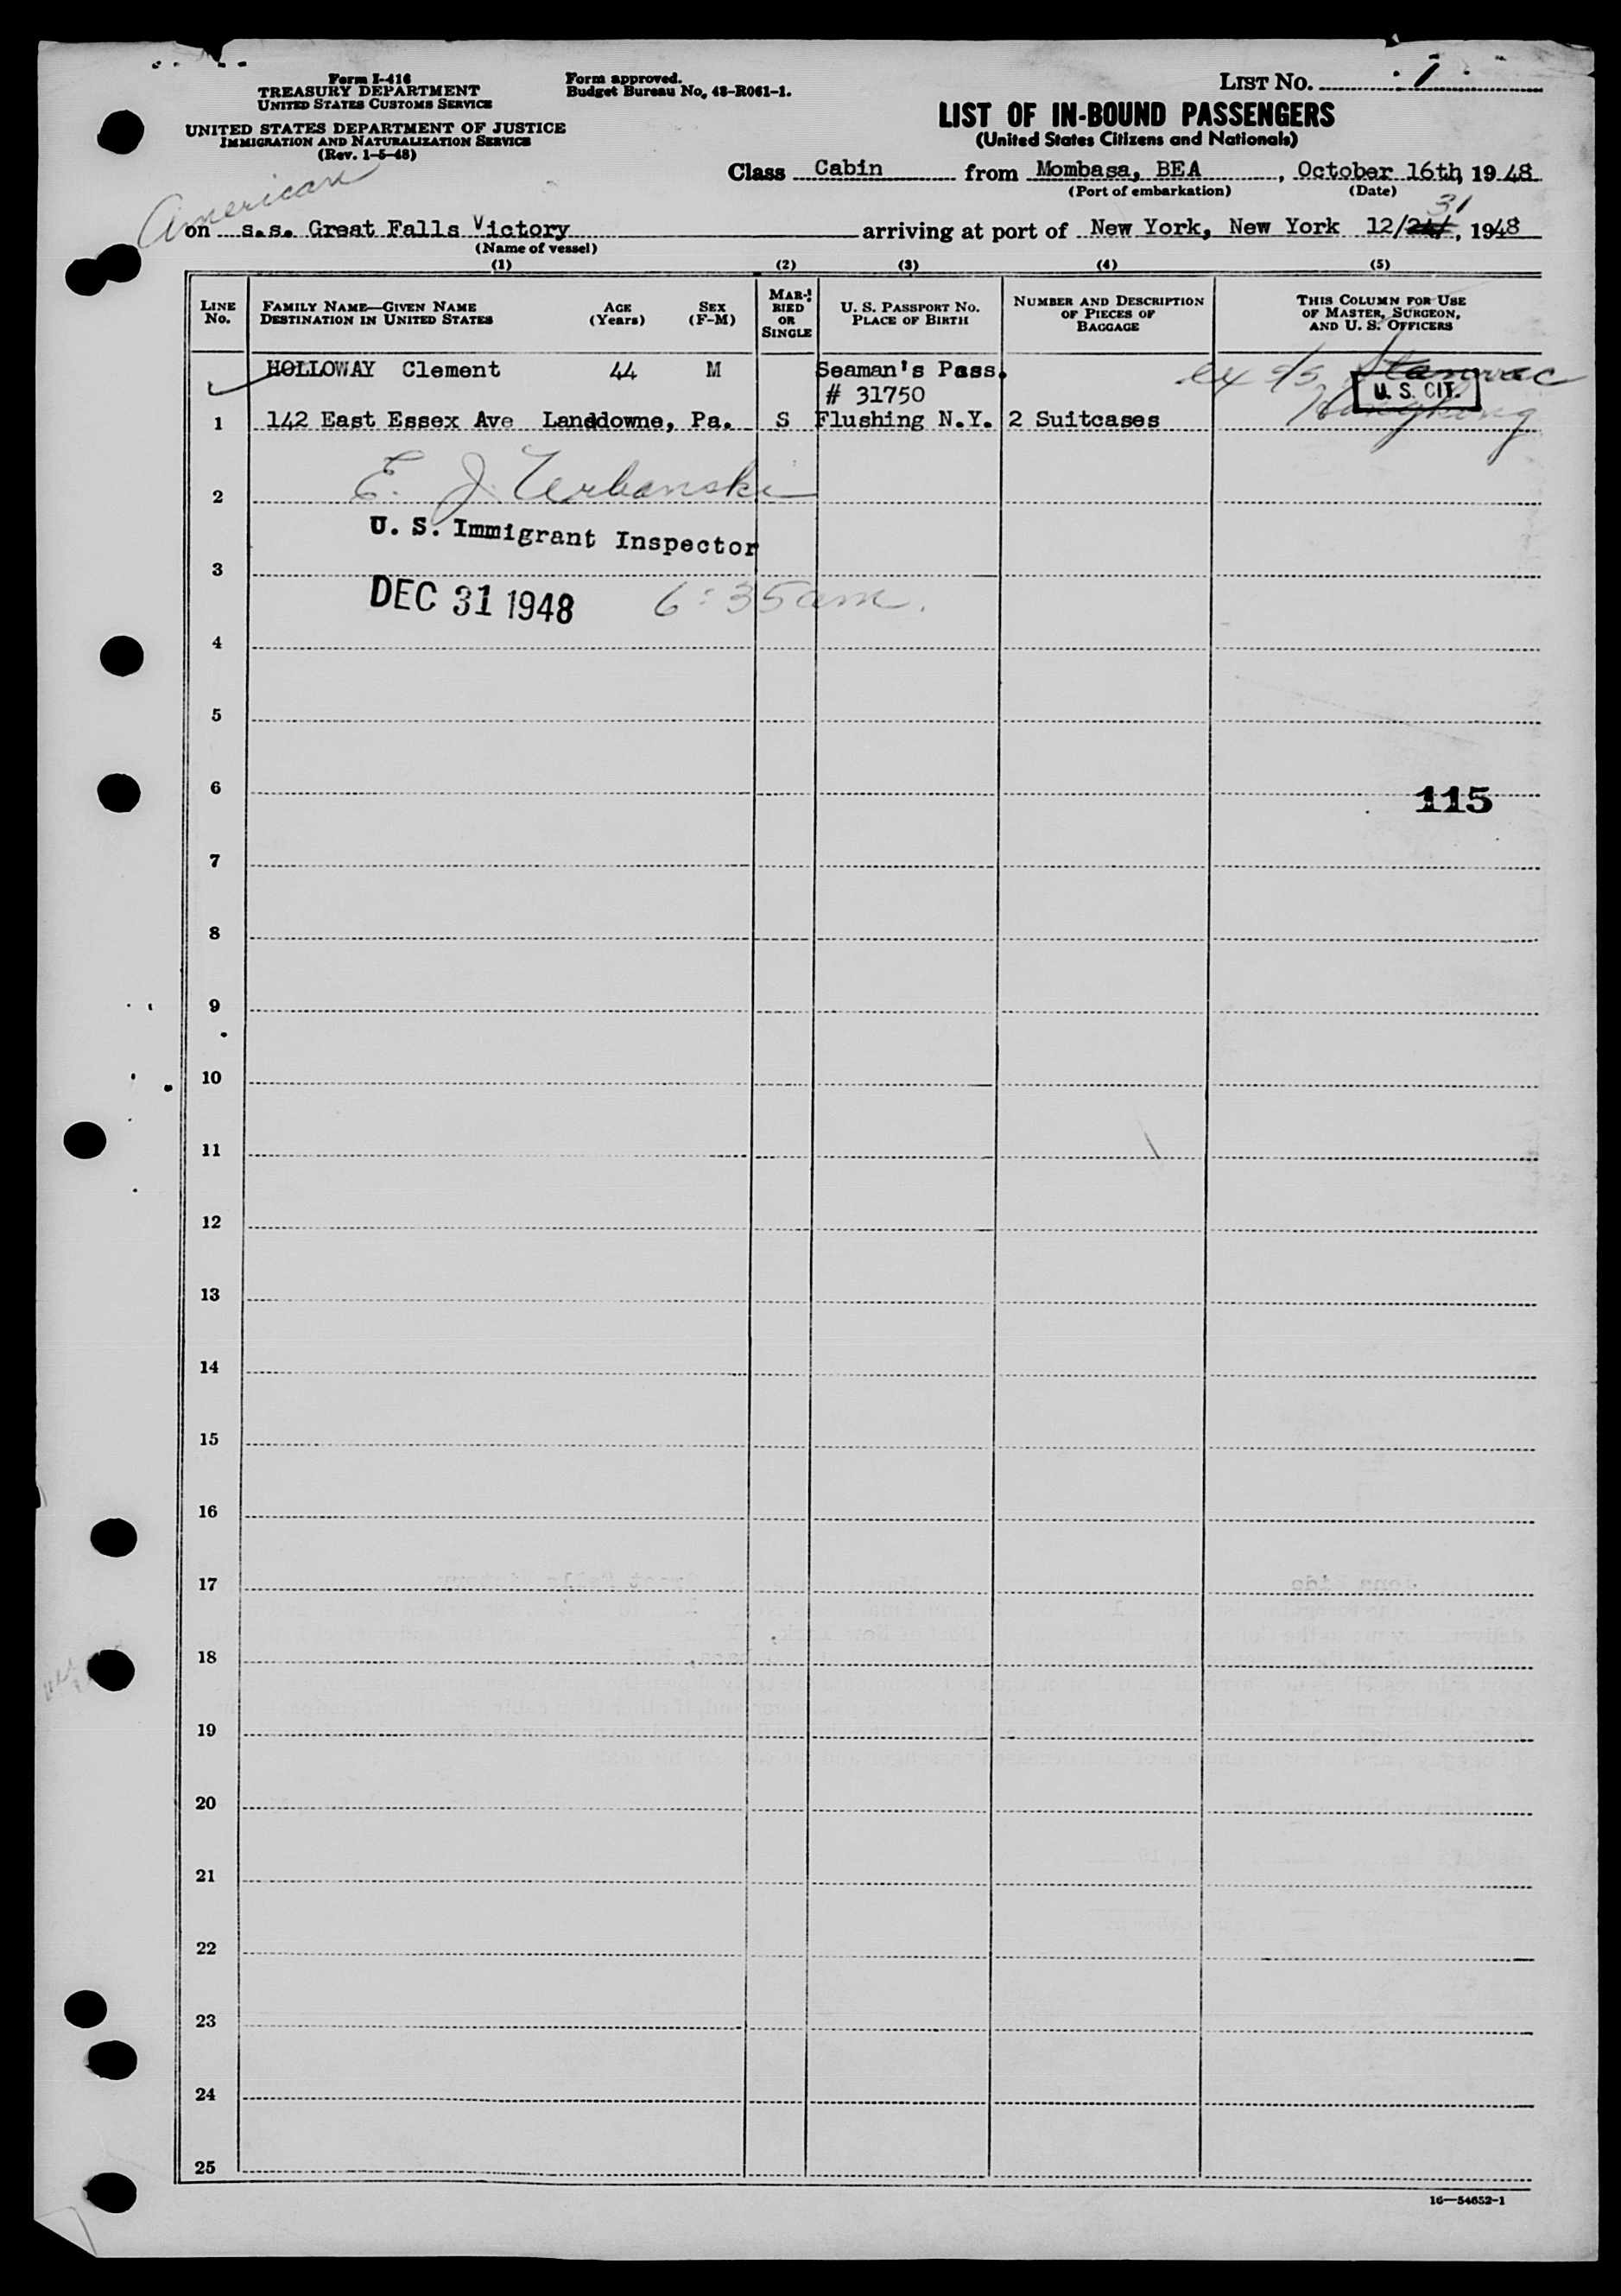 Form I-416
TREASURY DEPARTMENT
UNITED STATES CUSTOMS SERVICE
UNITED STATES DEPARTMENT OF JUSTICE
IMMIGRATION AND NATURALIZATION SERVICE
(Rev. 1-5-48)
Form approved.
Budget Bureau No. 43-R061-1.
LIST No. 1
LIST OF IN-BOUND PASSENGERS
(United States Citizens and Nationals)
Class Cabin from Mombasa, BEA, October 16th, 1948
(Port of embarkation) (Date)
American
31
on s.s. Great Falls Victory arriving at port of New York, New York 12/24/, 1948
(Name of vessel)
(1) (2) (3) (4) (5)
LINE No.
FAMILY NAME—GIVEN NAME
DESTINATION IN UNITED STATES
AGE (Years)
SEX (F-M)
MARRIED OR SINGLE
U. S. PASSPORT NO.
PLACE OF BIRTH
NUMBER AND DESCRIPTION OF PIECES OF BAGGAGE
THIS COLUMN FOR USE OF MASTER, SURGEON, AND U. S. OFFICERS
HOLLOWAY Clement 44 M Seaman's Pass. ex s/s Stanvac
# 31750 U. S. CIT.
1 142 East Essex Ave Lansdowne, Pa. S Flushing N.Y. 2 Suitcases Hongkong
E. J. Urbanski
2
U. S. Immigrant Inspector
3
DEC 31 1948 6:35am.
4
5
6
115
7
8
9
10
11
12
13
14
15
16
17
18
19
20
21
22
23
24
25
16—54652-1